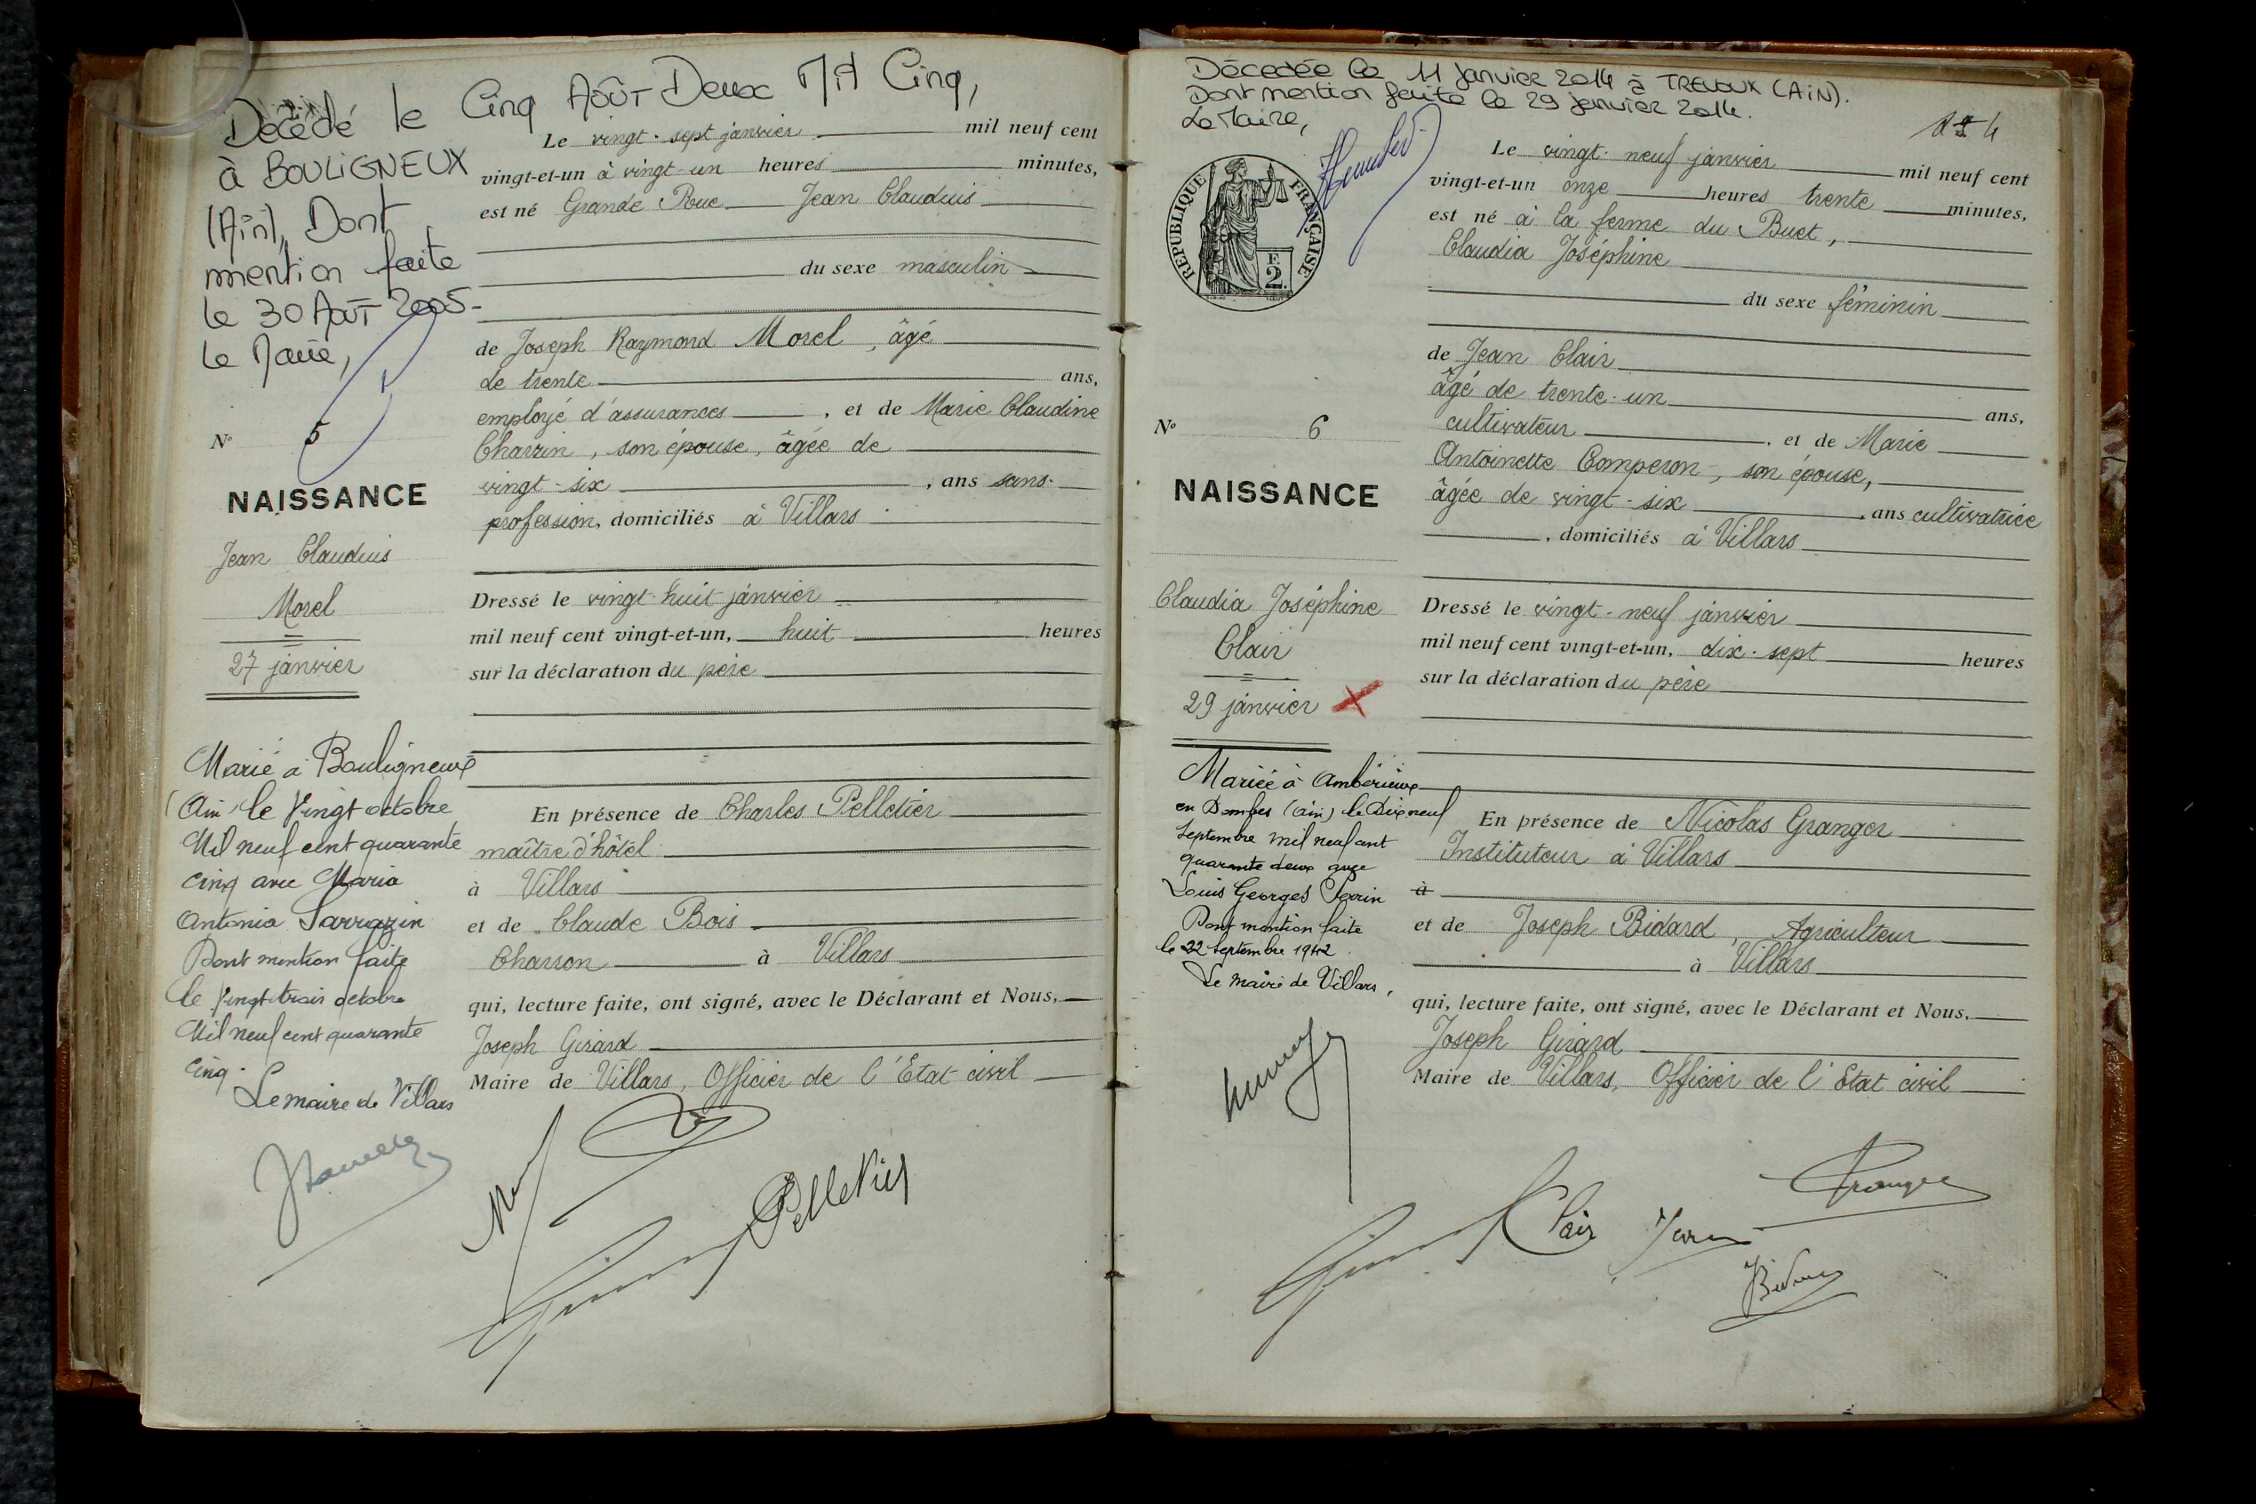 Décédé le Cinq AOÛT Deux Mil Cinq,
à BOULIGNEUX
(Ain), Dont
mention faite
le 30 AOUT 2005-
Le Maire,
N° 5
NAISSANCE
Jean Claudius
Morel
27 janvier
Marié à Bouligneux
(Ain) le vingt octobre
Mil neuf cent quarante
cinq avec Maria
Antonia Sarrazin
Dont mention faite
le vingt trois octobre
Mil neuf cent quarante
cinq.
Le maire de Villars
Le vingt-sept janvier mil neuf cent
vingt-et-un à vingt-un heures minutes,
est né Grande Rue Jean Claudius
du sexe masculin
de Joseph Raymond Morel, âgé
de trente ans,
employé d'assurances, et de Marie Claudine
Charrin, son épouse, âgée de
vingt-six, ans sans-
profession, domiciliés à Villars
Dressé le vingt-huit janvier
mil neuf cent vingt-et-un, huit heures
sur la déclaration du père
En présence de Charles Pelletier
maître d'hôtel
à Villars
et de Claude Bois
Charron à Villars
qui, lecture faite, ont signé, avec le Déclarant et Nous,
Joseph Girard
Maire de Villars, Officier de l'Etat civil
Pelletier
Décedée le 11 janvier 2014 à TREVOUX (AIN).
Dont mention faite le 29 janvier 2014.
Le Maire,
RÉPUBLIQUE FRANÇAISE
F.
2.
N° 6
NAISSANCE
Claudia Joséphine
Clair
29 janvier
Mariée à Ambérieux
en Dombes (Ain) le Dix neuf
Septembre mil neuf cent
quarante deux avec
Louis Georges Perrin
Dont mention faite
le 22 septembre 1942
Le maire de Villars,
4
Le vingt-neuf janvier mil neuf cent
vingt-et-un onze heures trente minutes,
est né à la ferme du Buet,
Claudia Joséphine
du sexe féminin
de Jean Clair
âgé de trente-un ans,
cultivateur, et de Marie
Antoinette Comperon, son épouse,
âgée de vingt-six, ans cultivatrice
, domiciliés à Villars
Dressé le vingt-neuf janvier
mil neuf cent vingt-et-un, dix-sept heures
sur la déclaration du père
En présence de Nicolas Granger
Instituteur à Villars
à
et de Joseph Bidard, Agriculteur
à Villars
qui, lecture faite, ont signé, avec le Déclarant et Nous,
Joseph Girard
Maire de Villars, Officier de l'Etat civil
Clair Jean
Granger